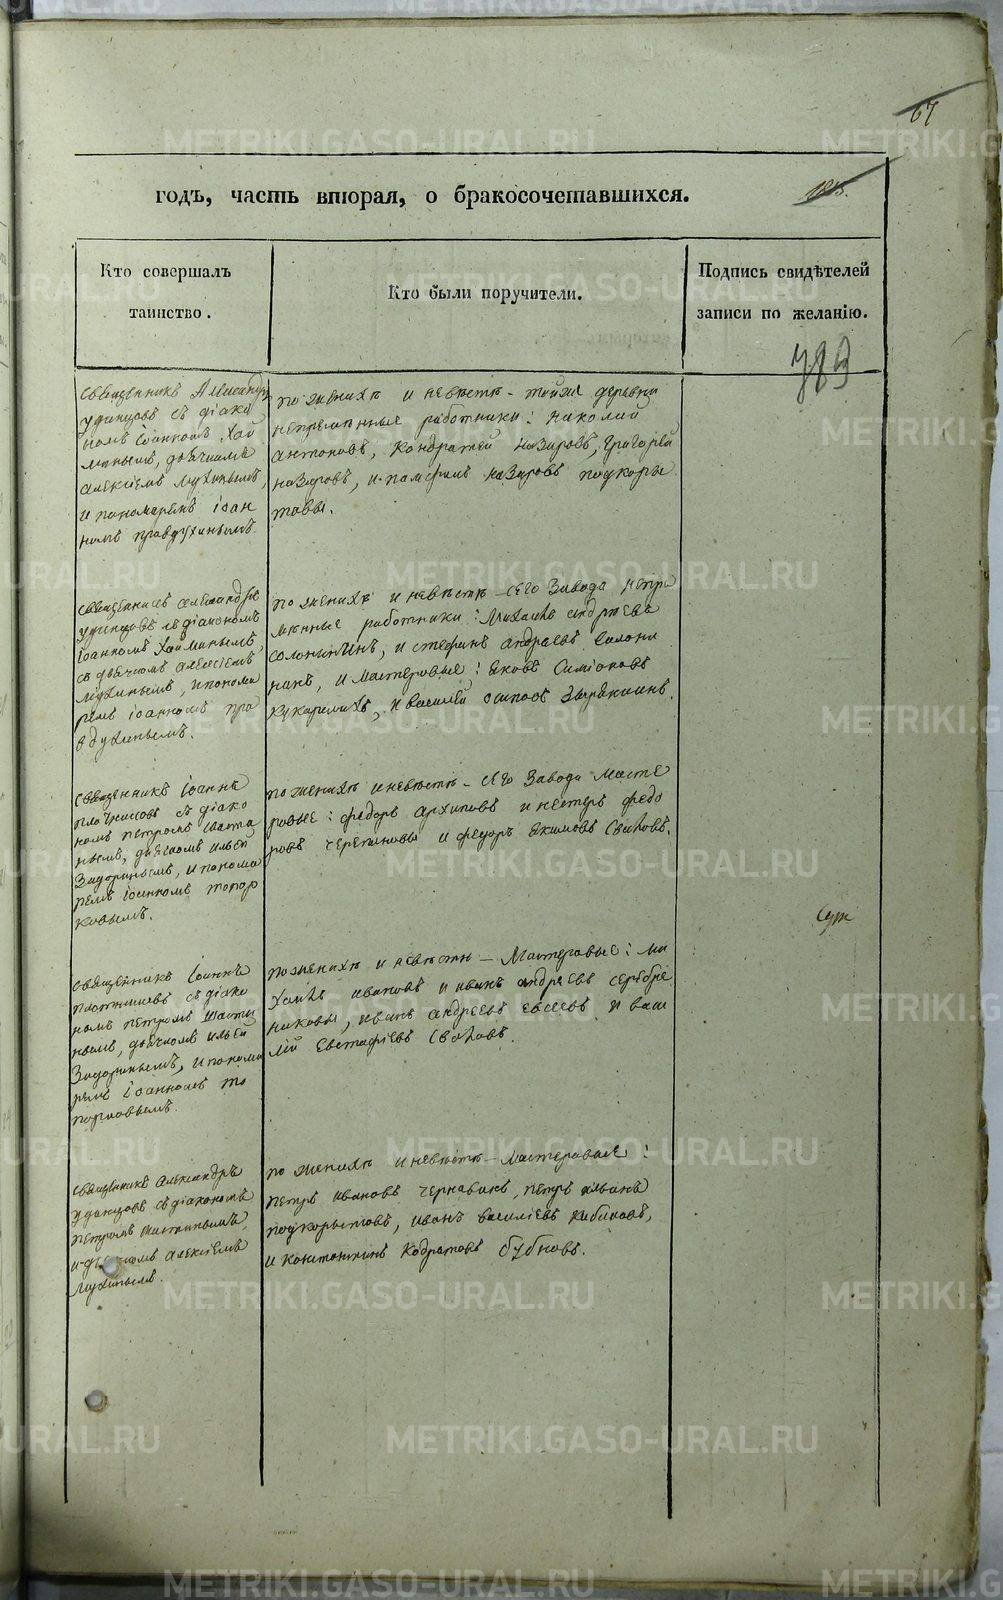 67
годъ, часть вторая, о бракосочетавшихся.
Кто совершалъ
таинство.
Кто были поручители.
Подпись свидѣтелей
записи по желанію.
789
священникъ Александръ
удинцовъ съ діако
номъ Іоанномъ Хай
минымъ, дьячкомъ
алексіемъ Мухинымъ,
и пономаремъ іоан
номъ правдухинымъ.
по женихѣ и невѣстѣ - тойже деревни
непременные работники: николай
антоновъ, Кондратей назаровъ, григорей
назаровъ, и памфилъ назаровъ подкоры
товы.
священникъ александръ
удинцовъ съ діакономъ
іоанномъ Хайминымъ,
съ дьячкомъ алексіемъ
мухинымъ, и понома
ремъ іоанномъ пра
вдухинымъ.
по женихѣ и невѣстѣ - сего завода непре
мѣнные работники: Михаилъ андреевъ
солонининъ, и стефанъ андреевъ Солони
нинъ, и мастеровые: яковъ Симионовъ
и василей осиповъ
священникъ іоаннъ
съ діако
номъ петромъ
нымъ, дьячкомъ ильей
Задоринымъ, и понома
ремъ іоанномъ топор
ковымъ.
по женихѣ и невѣстѣ - сего завода масте
ровые: федоръ архиповъ и нестеръ федо
ровъ черепановы и федоръ екимовъ Сваловъ.
священникъ іоаннъ
съ діако
номъ петромъ
нымъ, дьячкомъ ильей
Задоринымъ, и понома
ремъ іоанномъ то
порковымъ.
по женихѣ и невѣстѣ - Мастеровые: ми
хаилъ ивановъ и иванъ андреевъ серебре
никовы, иванъ андреевъ евсеевъ и васи
лій Евстафіевъ Сваловъ.
священникъ александръ
удинцовъ съ діакономъ
петромъ
и дьячкомъ алексіемъ
мухинымъ.
по женихѣ и невѣстѣ - Мастеровые:
петръ ивановъ петръ
подкорытовъ, иванъ василіевъ
и константинъ Кодратовъ бубновъ.
METRIKI.GASO-URAL.RU